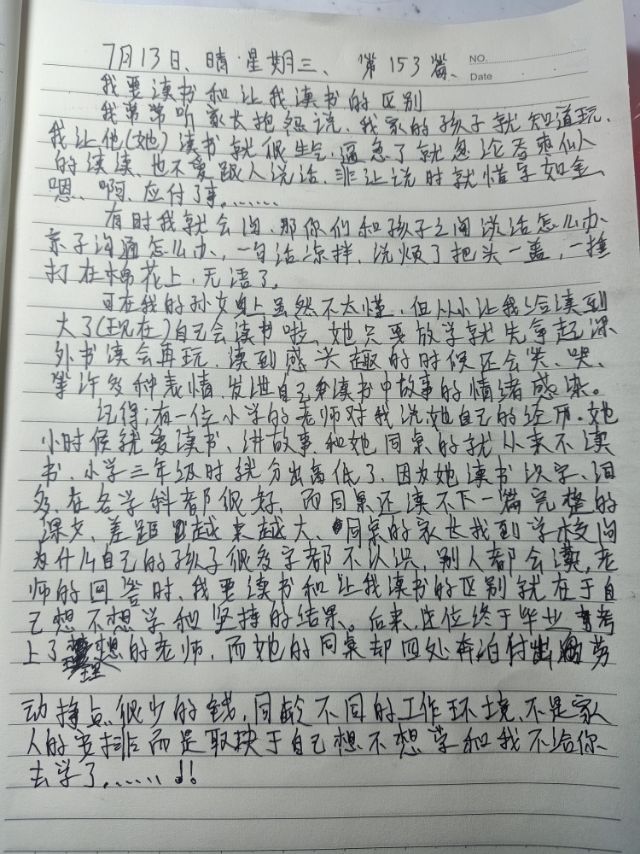 7月13日、晴·星期三、 第153篇、 NO.
Date
我要读书和让我读书的区别
我常常听家长抱怨说、我家的孩子就知道玩、
我让他(她)读书就很生气、逼急了就忽论吞枣似人
的读读、也不爱跟人说话、非让说时就惜字如金、
嗯、啊、应付了事。……
有时我就会问、那你们和孩子之间说话怎么办、
亲子沟通怎么办、一句话凉拌、说烦了把头一盖、一捶
打在棉花上、无语了。
在我的孙女身上虽然不太懂、但从小让我给读到
大了(现在)自己会读书啦、她只要放学就先拿起课
外书读会再玩、读到感兴趣的时候还会笑、哭、
等许多种表情、发泄自己读书中故事的情绪感染。
记得;有一位小学的老师对我说她自己的经历、她
小时候就爱读书、讲故事和她同桌的就从来不读
书、小学三年级时就分出高低了、因为她读书识字、词
多、在各学科都很好、而同桌还读不下一篇完整的
课文、差距越来越大、同桌的家长找到学校问
为什么自己的孩子很多字都不认识、别人都会读、老
师的回答时、我要读书和让我读书的区别就在于自
己想不想学和坚持的结果。后来、这位终于毕业考
上了理想的老师、而她的同桌却四处奔泊付出劳
动挣点很少的钱、同龄不同的工作环境、不是家
人的安排而是取抉于自己想不想学和我不给你
去学了……!!